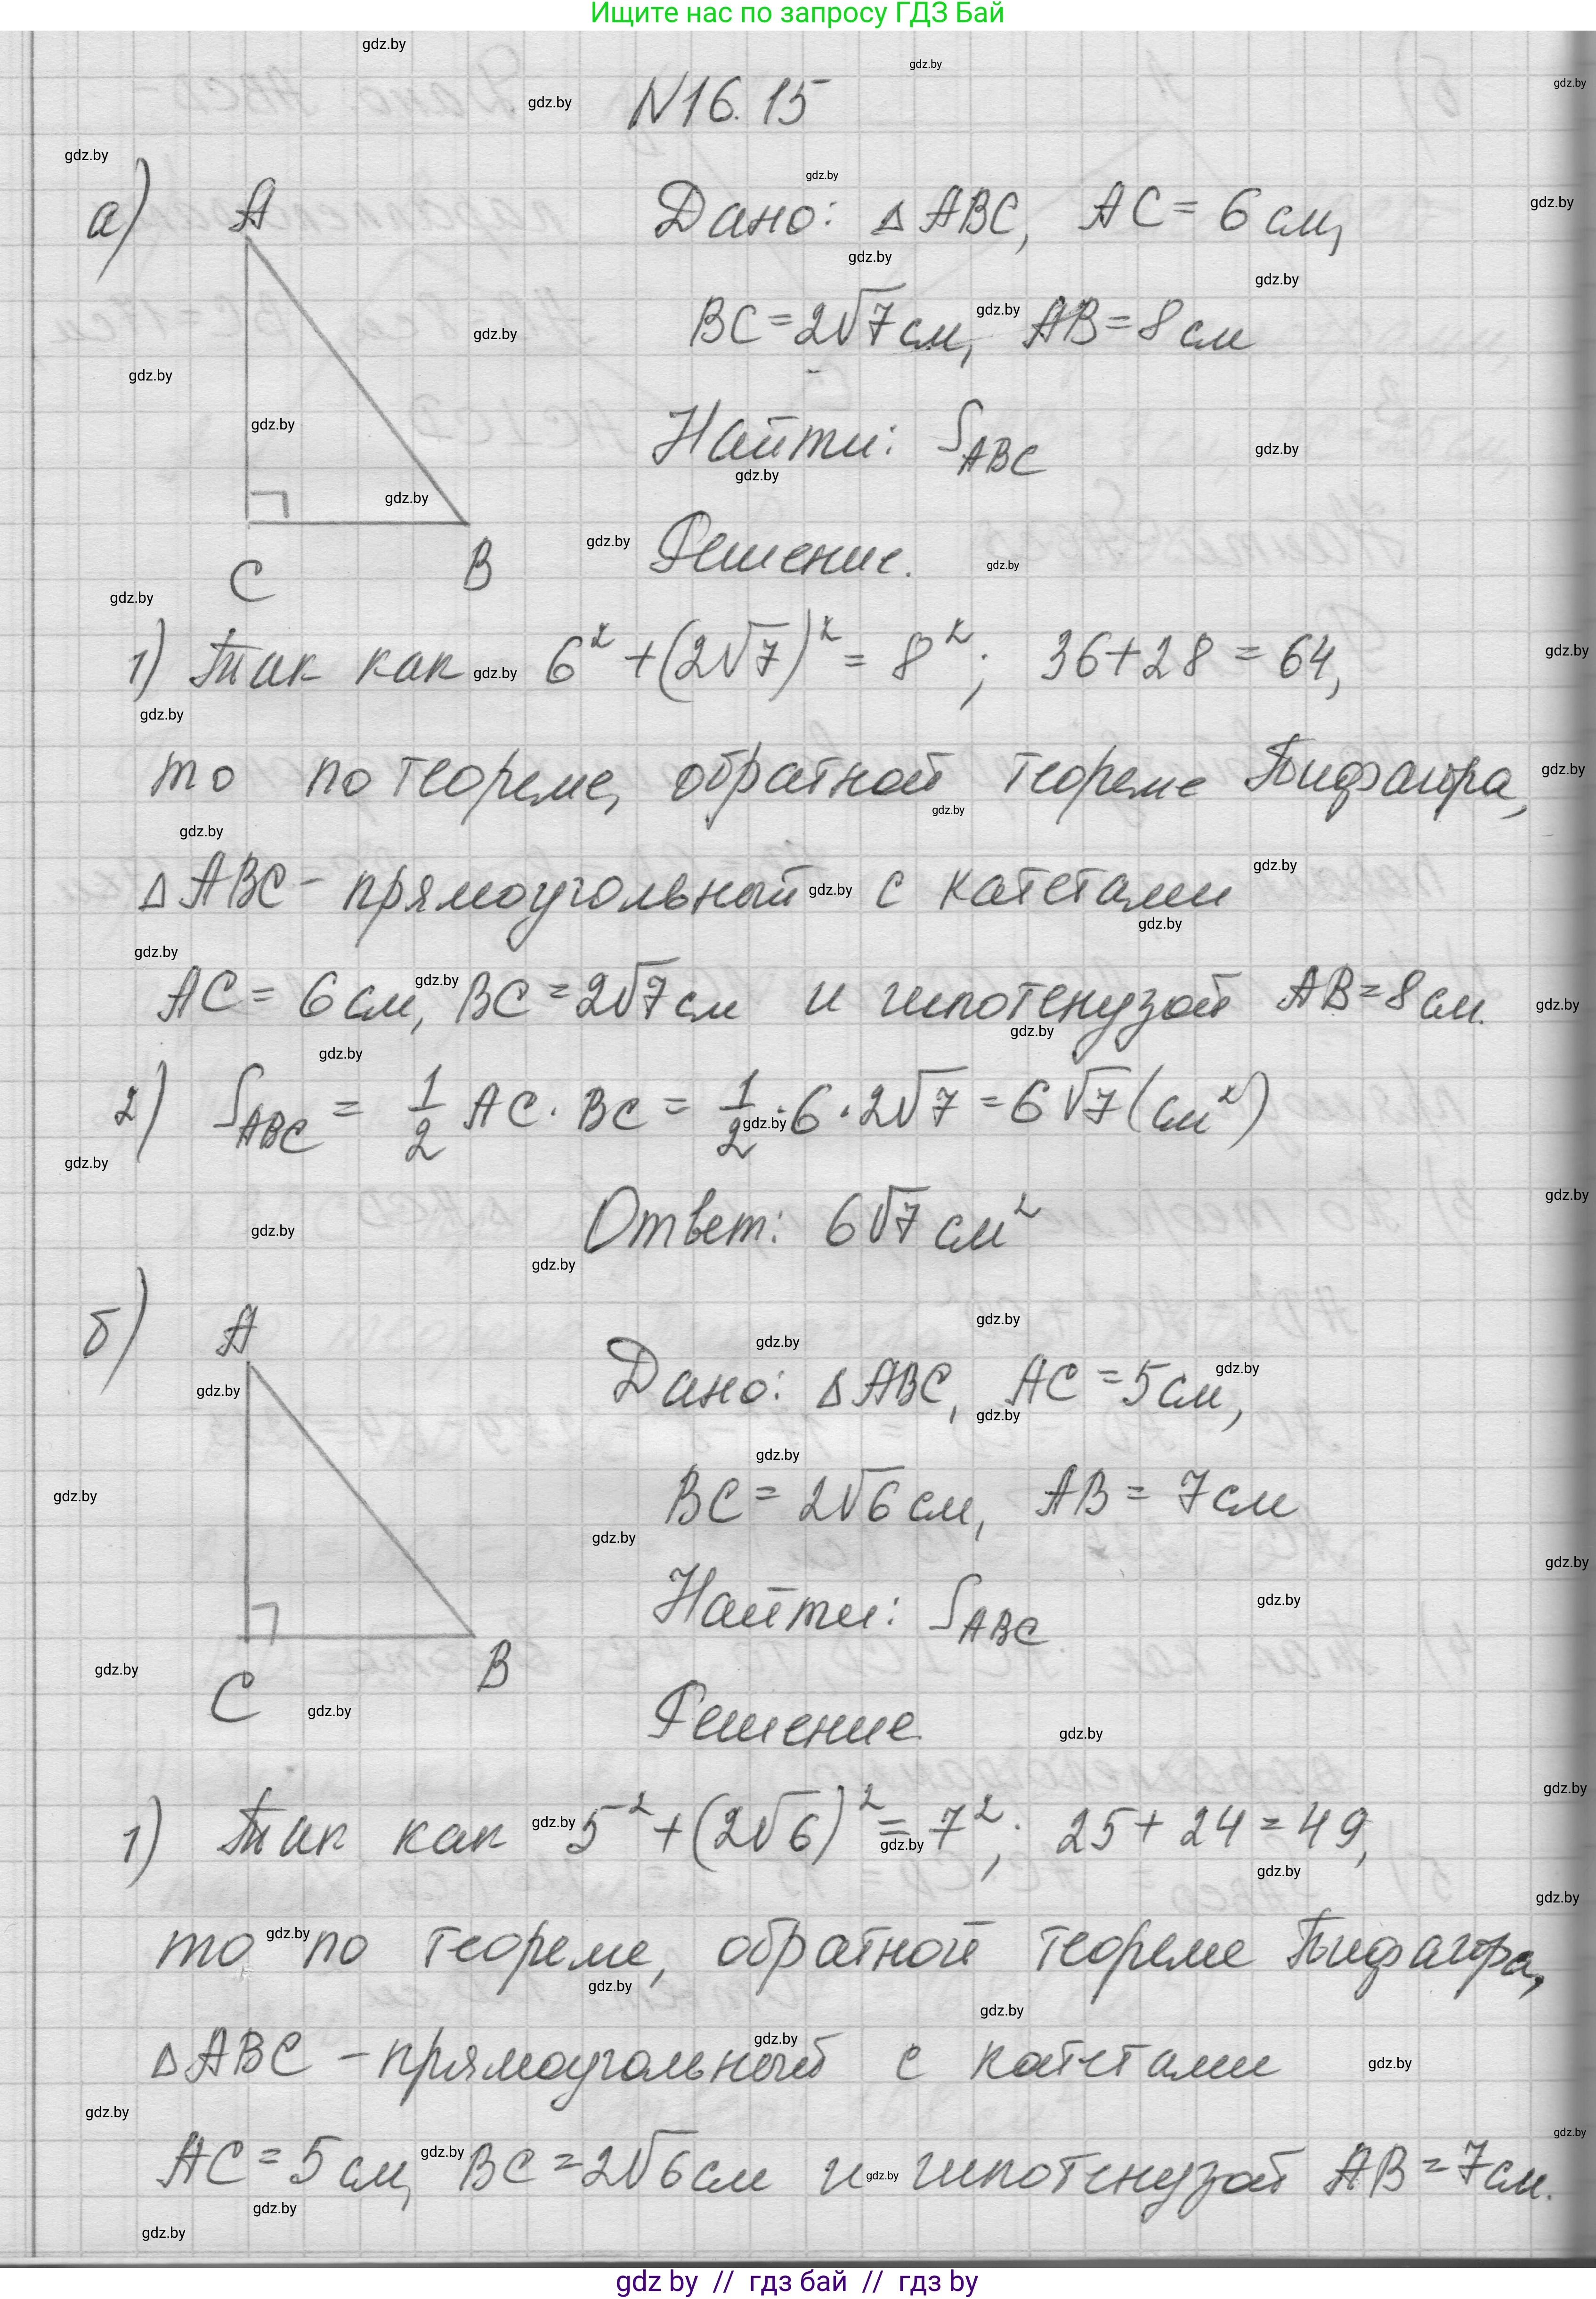 Ищите нас по запросу ГДЗ Бай
N16.15
а) A
Дано: △ABC, AC = 6 см,
BC = 2√7 см, AB = 8 см
Найти: S_ABC
C B
Решение.
1) Так как 6² + (2√7)² = 8²; 36 + 28 = 64,
то по теореме, обратной теореме Пифагора,
△ABC - прямоугольный с катетами
AC = 6 см, BC = 2√7 см и гипотенузой AB = 8 см.
2) S_ABC = 1/2 AC · BC = 1/2 · 6 · 2√7 = 6√7 (см²)
Ответ: 6√7 см²
б) A
Дано: △ABC, AC = 5 см,
BC = 2√6 см, AB = 7 см
Найти: S_ABC
C B
Решение
1) Так как 5² + (2√6)² = 7²; 25 + 24 = 49,
то по теореме, обратной теореме Пифагора,
△ABC - прямоугольный с катетами
AC = 5 см, BC = 2√6 см и гипотенузой AB = 7 см.
gdz by // гдз бай // гдз by